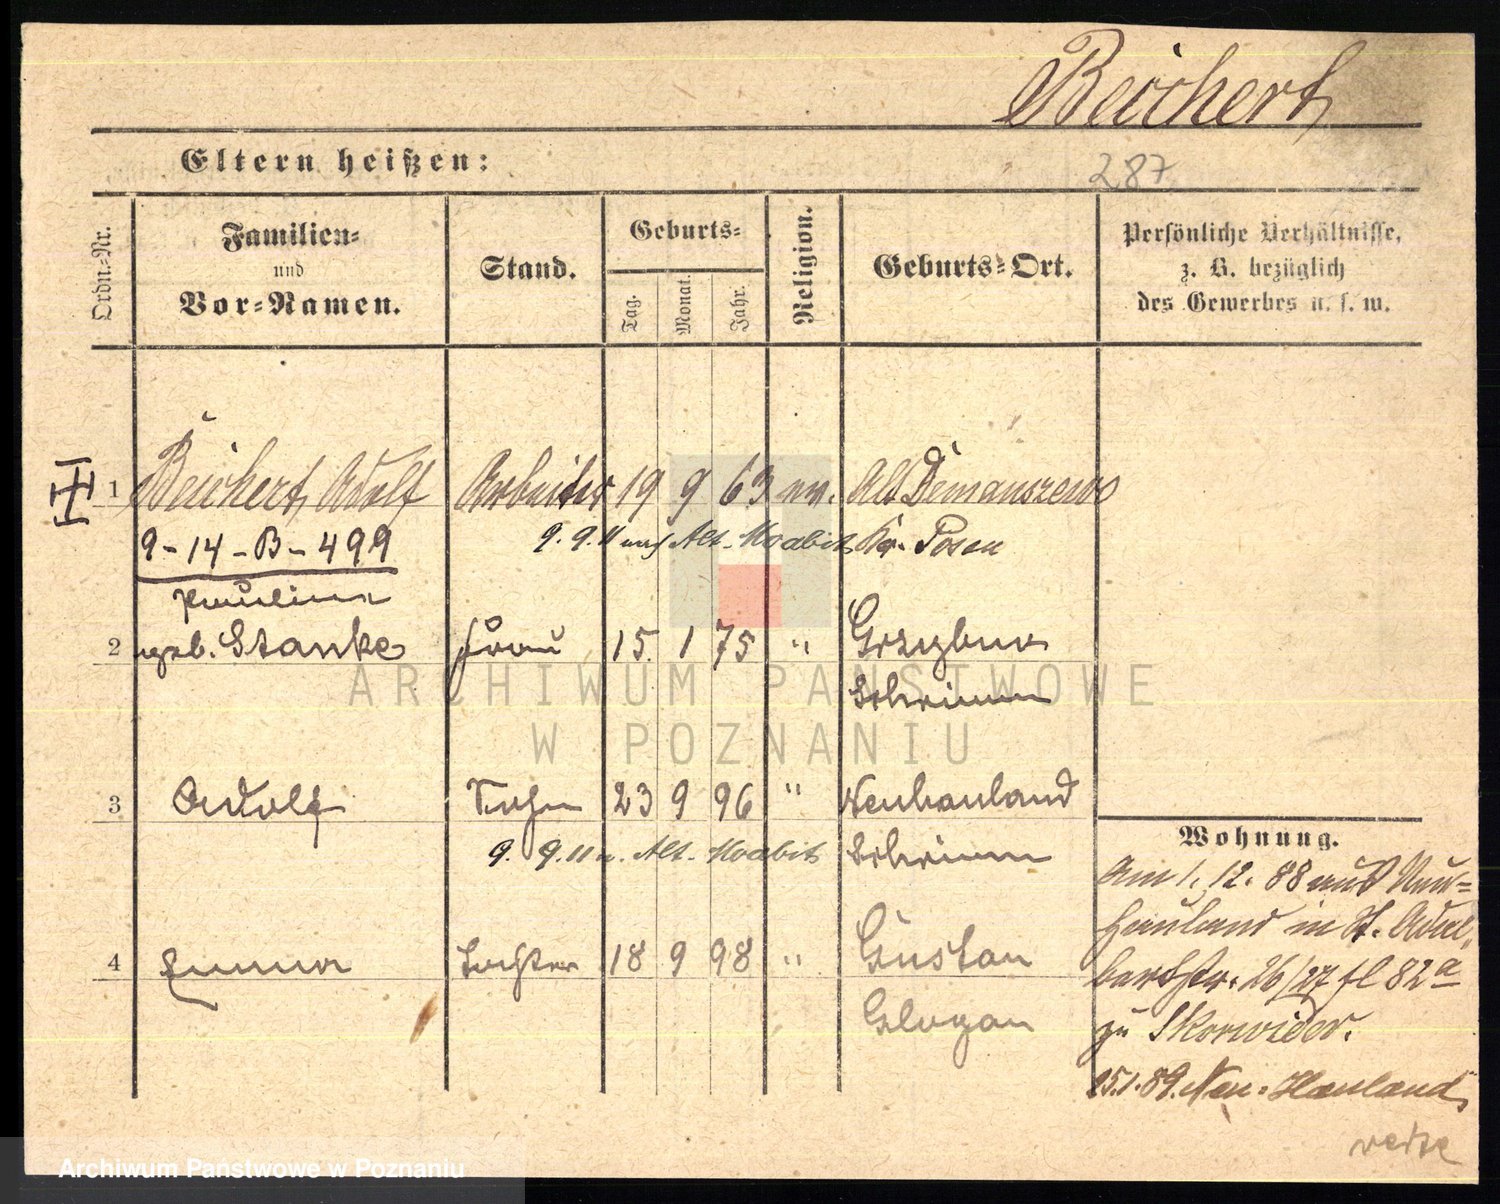 Beichert
Eltern heißen:
287
Ordn.-Nr.
Familien-
und
Vor-Namen.
Stand.
Geburts-
Tag.
Monat.
Jahr.
Religion.
Geburts-Ort.
Persönliche Verhältnisse,
z. B. bezüglich
des Gewerbes u. s. w.
1 Beichert, Adolf Arbeiter 19 9 63 ev. Alt Demanszewo
9-14-B-499 9. 9. 11 nach Alt-Moabit Kr. Posen
Pauline
2 geb. Stanke Frau 15. 1 75 " Grzybno
Schrimm
3 Adolf Sohn 23 9 96 " Neuhauland
9. 9. 11 n. Alt-Moabit Schrimm
4 Emma Tochter 18 9 98 " Gustau
Glogau
Wohnung.
Am 1. 12. 88 aus Neu-
hauland in St. Adal-
bertstr. 26/27 fl 82a
zu Skorwider.
15.1.89. Neu-Hauland,
ARCHIWUM PAŃSTWOWE
W POZNANIU
Archiwum Państwowe w Poznaniu